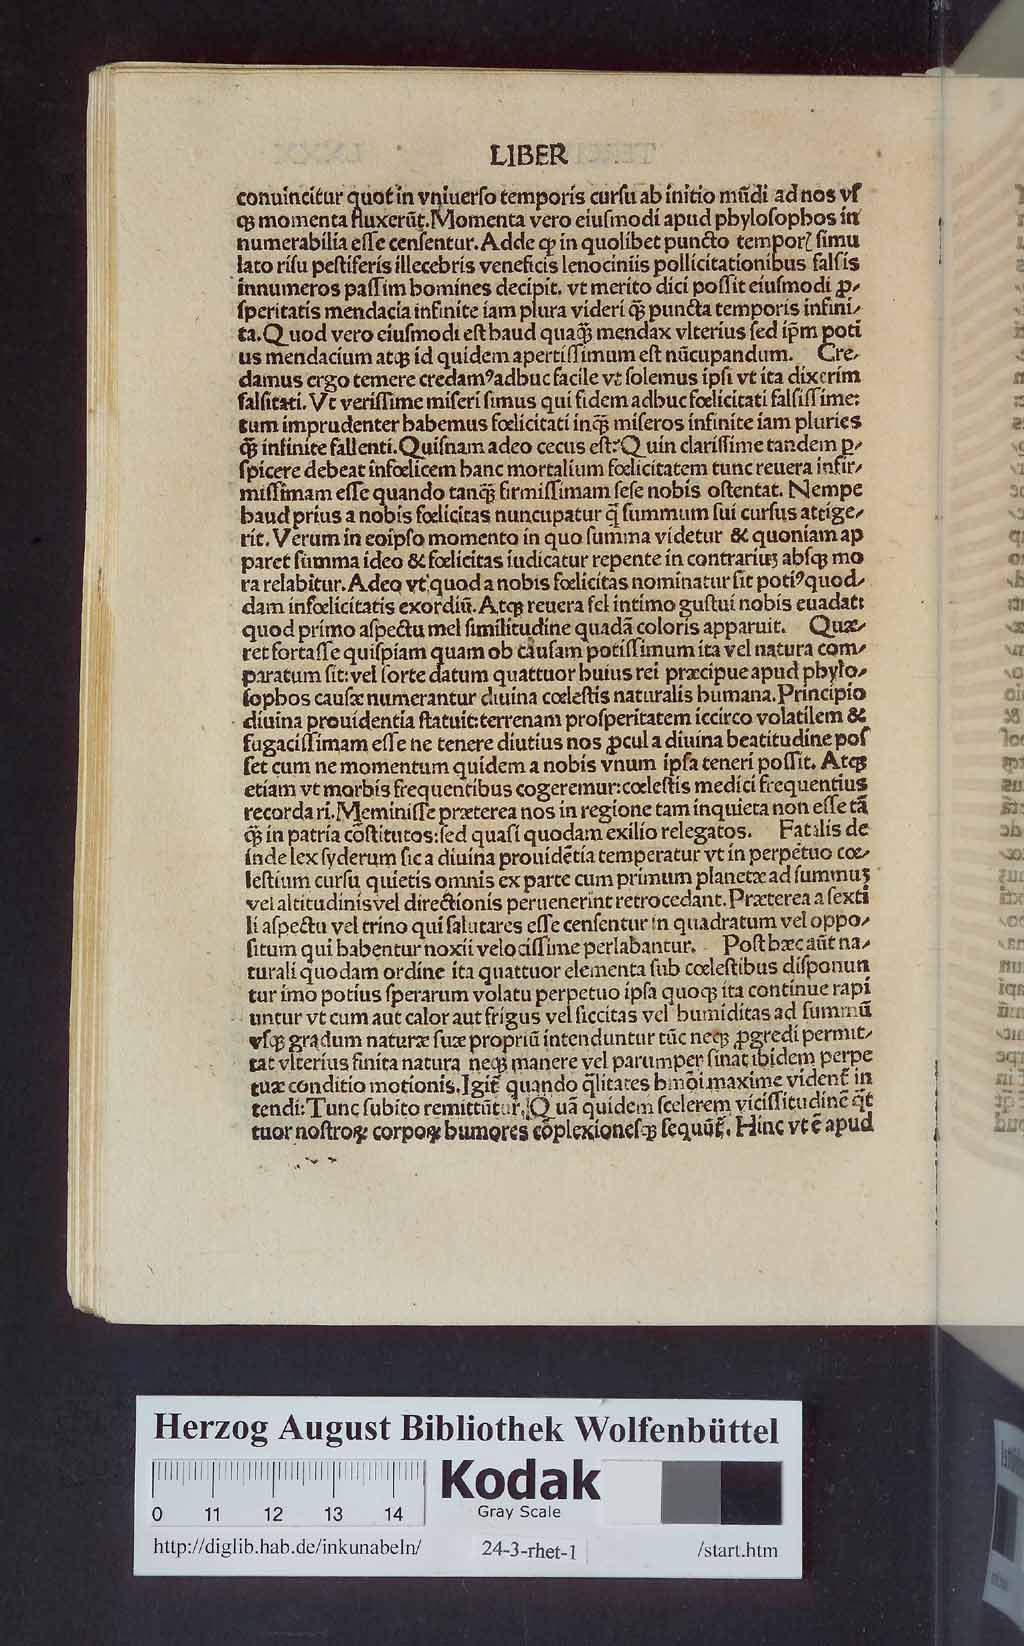 LIBER
conuincitur quot in vniuerso temporis cursu ab initio mūdi ad nos vſ
qꝫ momenta fluxerūt. Momenta vero eiuſmodi apud phyloſophos in
numerabilia eſſe cenſentur. Adde ꝙ in quolibet puncto temporꝭ ſimu
lato riſu peſtiferis illecebris veneficis lenociniis pollicitationibus falſis
innumeros paſſim homines decipit. vt merito dici poſſit eiuſmodi ꝓ⸗
ſperitatis mendacia infinite iam plura videri qꝫ̄ puncta temporis infini⸗
ta. Quod vero eiuſmodi eſt haud quaqꝫ̄ mendax vlterius ſed ip̄m poti
us mendacium atqꝫ id quidem apertiſſimum eſt nūcupandum. Cre⸗
damus ergo temere credamꝰ adhuc facile vt ſolemus ipſi vt ita dixerim
falſitati. Vt veriſſime miſeri ſimus qui fidem adhuc fœlicitati falſiſſime:
tum imprudenter habemus fœlicitati inqꝫ̄ miſeros infinite iam pluries
qꝫ̄ infinite fallenti. Quiſnam adeo cecus eſt? Quin clariſſime tandem ꝑ⸗
ſpicere debeat infœlicem hanc mortalium fœlicitatem tunc reuera infir⸗
miſſimam eſſe quando tanqꝫ̄ firmiſſimam ſeſe nobis oſtentat. Nempe
haud prius a nobis fœlicitas nuncupatur q̄ ſummum ſui curſus attige⸗
rit. Verum in eoipſo momento in quo ſumma videtur & quoniam ap
paret ſumma ideo & fœlicitas iudicatur repente in contrariuꝫ abſqꝫ mo
ra relabitur. Adeo vt quod a nobis fœlicitas nominatur ſit potiꝰ quod⸗
dam infœlicitatis exordiū. Atqꝫ reuera fel intimo guſtui nobis euadat:
quod primo aſpectu mel ſimilitudine quadā coloris apparuit. Quæ⸗
ret fortaſſe quiſpiam quam ob cauſam potiſſimum ita vel natura com⸗
paratum ſit: vel ſorte datum quattuor huius rei præcipue apud phylo⸗
ſophos cauſæ numerantur diuina cœleſtis naturalis humana. Principio
diuina prouidentia ſtatuit: terrenam proſperitatem iccirco volatilem &
fugaciſſimam eſſe ne tenere diutius nos ꝓcul a diuina beatitudine poſ
ſet cum ne momentum quidem a nobis vnum ipſa teneri poſſit. Atqꝫ
etiam vt morbis frequentibus cogeremur: cœleſtis medici frequentius
recordari. Meminiſſe præterea nos in regione tam inquieta non eſſe tā
qꝫ̄ in patria cōſtitutos: ſed quaſi quodam exilio relegatos. Fatalis de
inde lex ſyderum ſic a diuina prouidētia temperatur vt in perpetuo cœ⸗
leſtium curſu quietis omnis ex parte cum primum planetæ ad ſummuꝫ
vel altitudinis vel directionis peruenerint retrocedant. Præterea a ſexti
li aſpectu vel trino qui ſalutares eſſe cenſentur in quadratum vel oppo⸗
ſitum qui habentur noxii velociſſime perlabantur. Poſt hæc aūt na⸗
turali quodam ordine ita quattuor elementa ſub cœleſtibus diſponun
tur imo potius ſperarum volatu perpetuo ipſa quoqꝫ ita continue rapi
untur vt cum aut calor aut frigus vel ſiccitas vel humiditas ad ſummū
vſqꝫ gradum naturæ ſuæ propriū intenduntur tūc neqꝫ ꝓgredi permit⸗
tat vlterius finita natura neqꝫ manere vel parumper ſinat ibidem perpe
tuæ conditio motionis. Igit̄ quando q̄litates hmōi maxime vident̄ in
tendi: Tunc ſubito remittūtur. Quā quidem ſcelerem viciſſitudinē q̄t
tuor noſtroꝝ corpoꝝ humores cōplexioneſqꝫ ſequūt̄. Hinc vt ē apud
Herzog August Bibliothek Wolfenbüttel
Kodak
Gray Scale
0 11 12 13 14
http://diglib.hab.de/inkunabeln/ 24-3-rhet-1 /start.htm